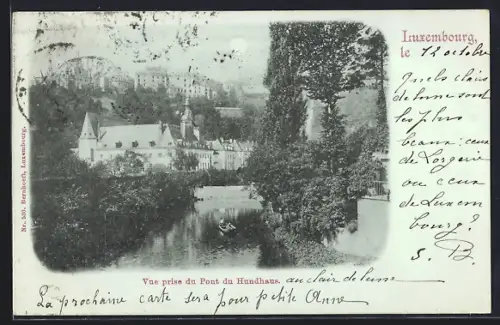 Luxembourg,
le 12 octobre
Quels clairs
de lune sont
les plus
beaux : ceux
de Lorgerie
ou ceux
de Luxem
bourg?
S. B.
Nr. 531. Bernhoeft, Luxembourg.
Vue prise du Pont du Hundhaus. au clair de lune
La prochaine carte sera pour petite Anne